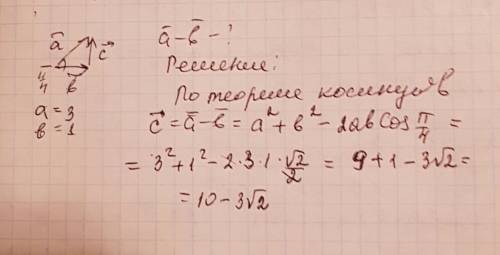 a̅ c⃗
π/4 b̅
a = 3
b = 1
a̅ - b̅ - ?
Решение:
По теореме косинусов
c⃗ = a̅ - b̅ = a² + b² - 2ab cos π/4 =
= 3² + 1² - 2·3·1·√2/2 = 9 + 1 - 3√2 =
= 10 - 3√2